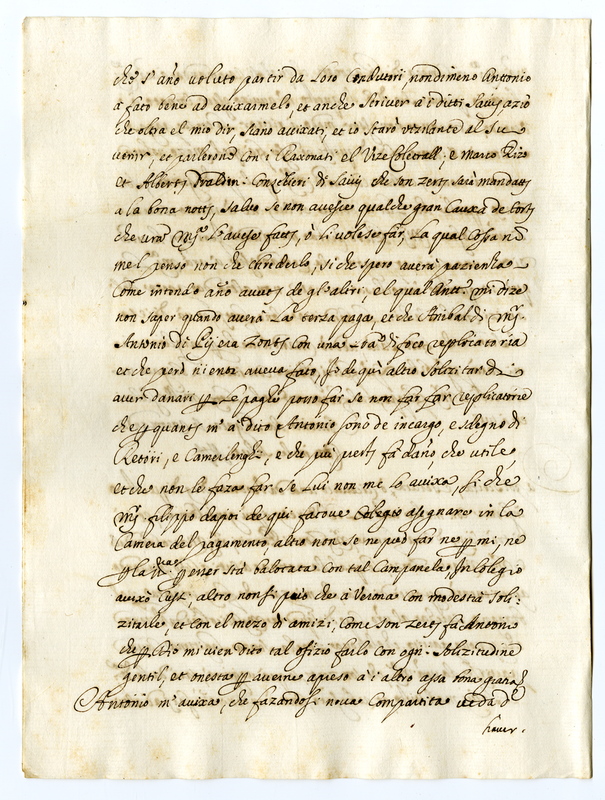 che s'ano voluto partir da Loro Condutori, nondimeno Anttonio
à fato bene ad avixarmelo, et anche scriver à i ditti Savij, aziò
che oltra el mio dir, siano avixati, et io starò vezilante al suc
venir, et parlerone con i Raxonati, el Vize Coleterall, e Marco Rizo
et Albertj : Conzelieri di Savij che son zertj sarà mandatj
a la bona notte, salvo se non avesse qualche gran Cauxa de tortj
che vra Mg.co l'avese fatj, ò li volese far, La qual Cossa nō
mel penso non che chrederlo, si che spero averà pazienzia
Come intendo ano avuto de gl'altri, el qual Antt.o mi dize
non saper quando averà La terza paga, et che Anibal di Mj.
Antonio di era zontj con una di foco replicatoria
et che però nienor aveva fato, Io de qui altro solizitar di
aver danari le paghe posso far se non far far replicatorie
che quantj m'à dito Antonio sono de incargo, e sdegno di
Retori, e Camerlenghi, e che più prestj fà dano, che utile,
et che non le faza far se Lui non me lo avixa, si che
Mj. filippo dapoi de qui fatove Colegio asegnare in la
Camera del pagamento, altro non se ne può far ne mi, ne
esser stà balotata con tal Campanela, In Colegio
avixo altro non si può che à Verona con modestia soli:
zitarle, et con el mezo di amizi, come son zertj fà Antonio
che mi vien dito tal ofizio farlo con ogni solizitudine
gentil, et onesta averne apreso à i altro assa bona gratia
Antonio m'avixa, che fazandosi nova Compartita veda de
haver.